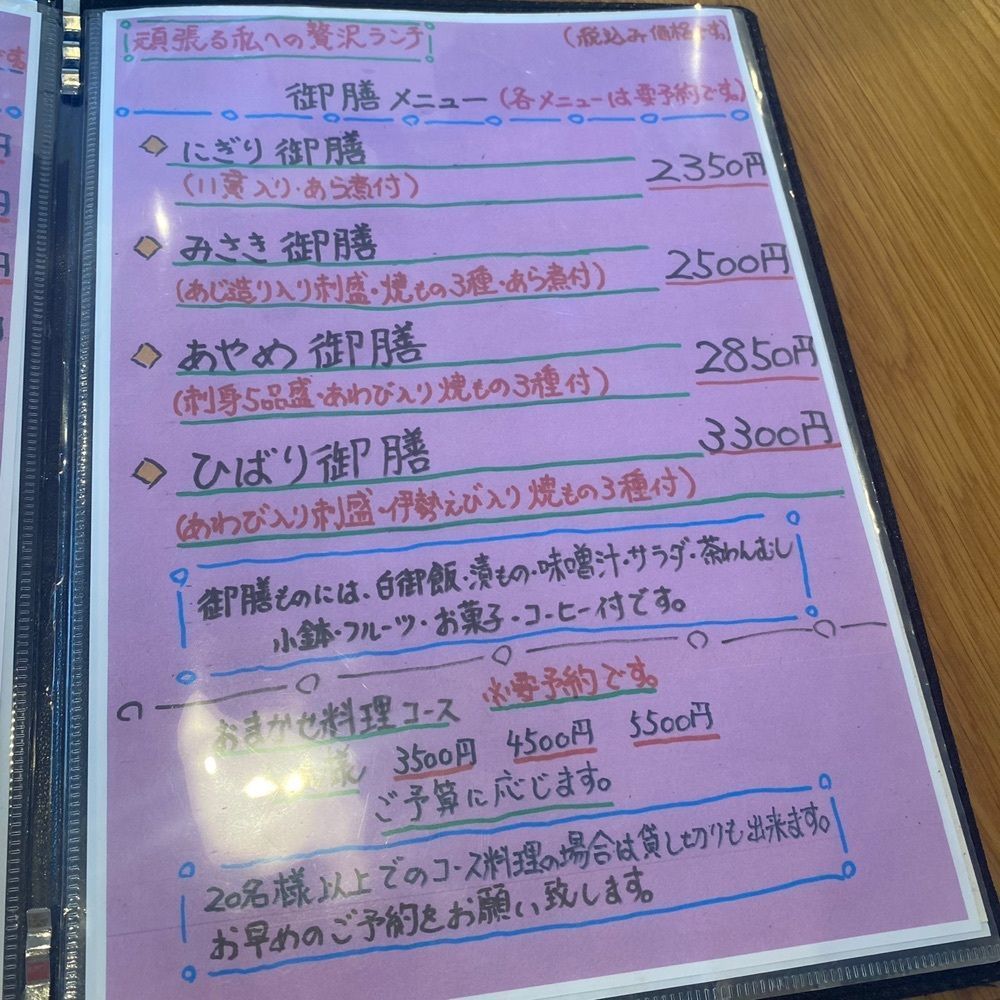 頑張る私への贅沢ランチ (税込み価格です)
御膳メニュー (各メニューは要予約です。)
にぎり御膳 2350円
(11貫入り・あら煮付)
みさき御膳 2500円
(あじ造り入り刺盛・焼もの3種・あら煮付)
あやめ御膳 2850円
(刺身5品盛・あわび入り焼もの3種付)
ひばり御膳 3300円
(あわび入り刺盛・伊勢えび入り焼もの3種付)
御膳ものには、白御飯・漬もの・味噌汁・サラダ・茶わんむし
小鉢・フルーツ・お菓子・コーヒー付です。
おまかせ料理コース 必要予約です。
様 3500円 4500円 5500円
ご予算に応じます。
20名様以上でのコース料理の場合は貸し切りも出来ます。
お早めのご予約をお願い致します。